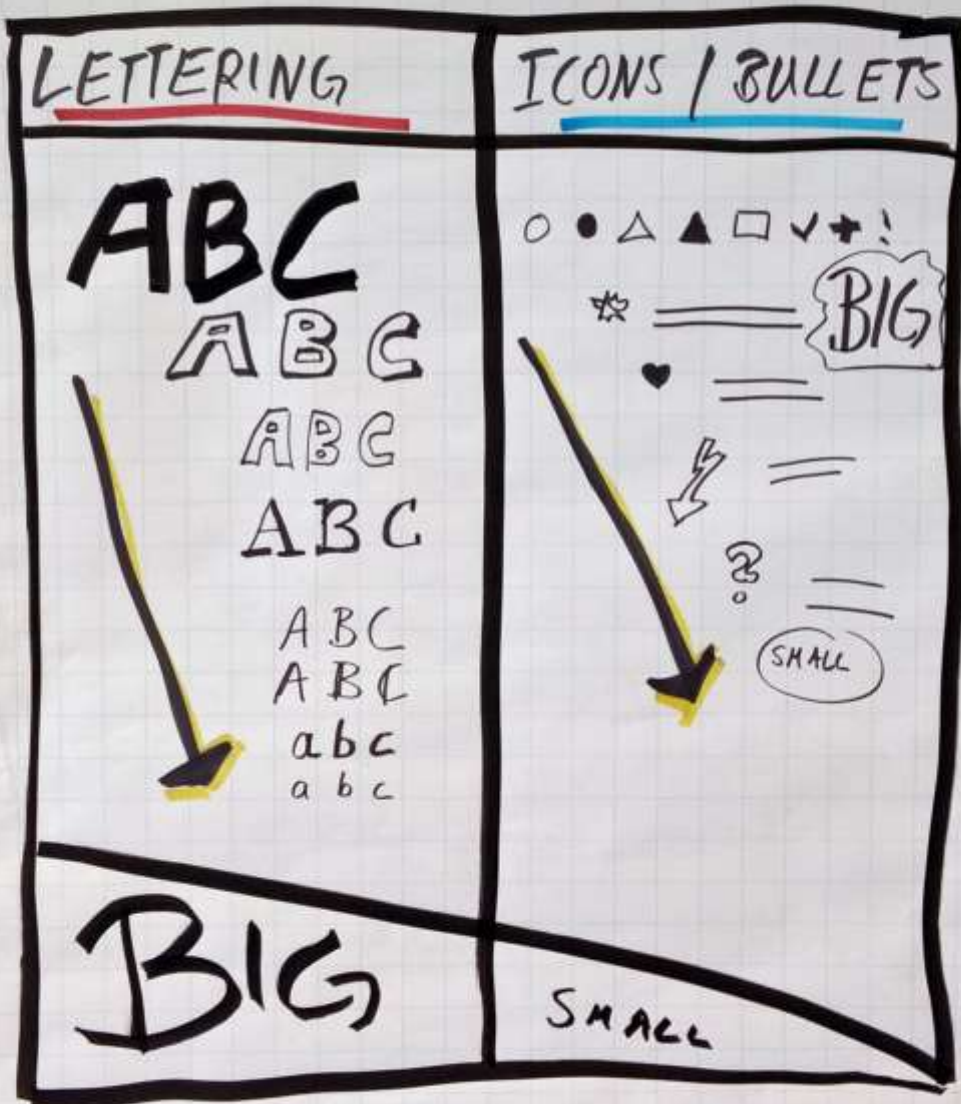 LETTERING
ABC
ABC
ABC
ABC
ABC
ABC
abc
abc
BIG
ICONS / BULLETS
!
BIG
?
SMALL
SMALL